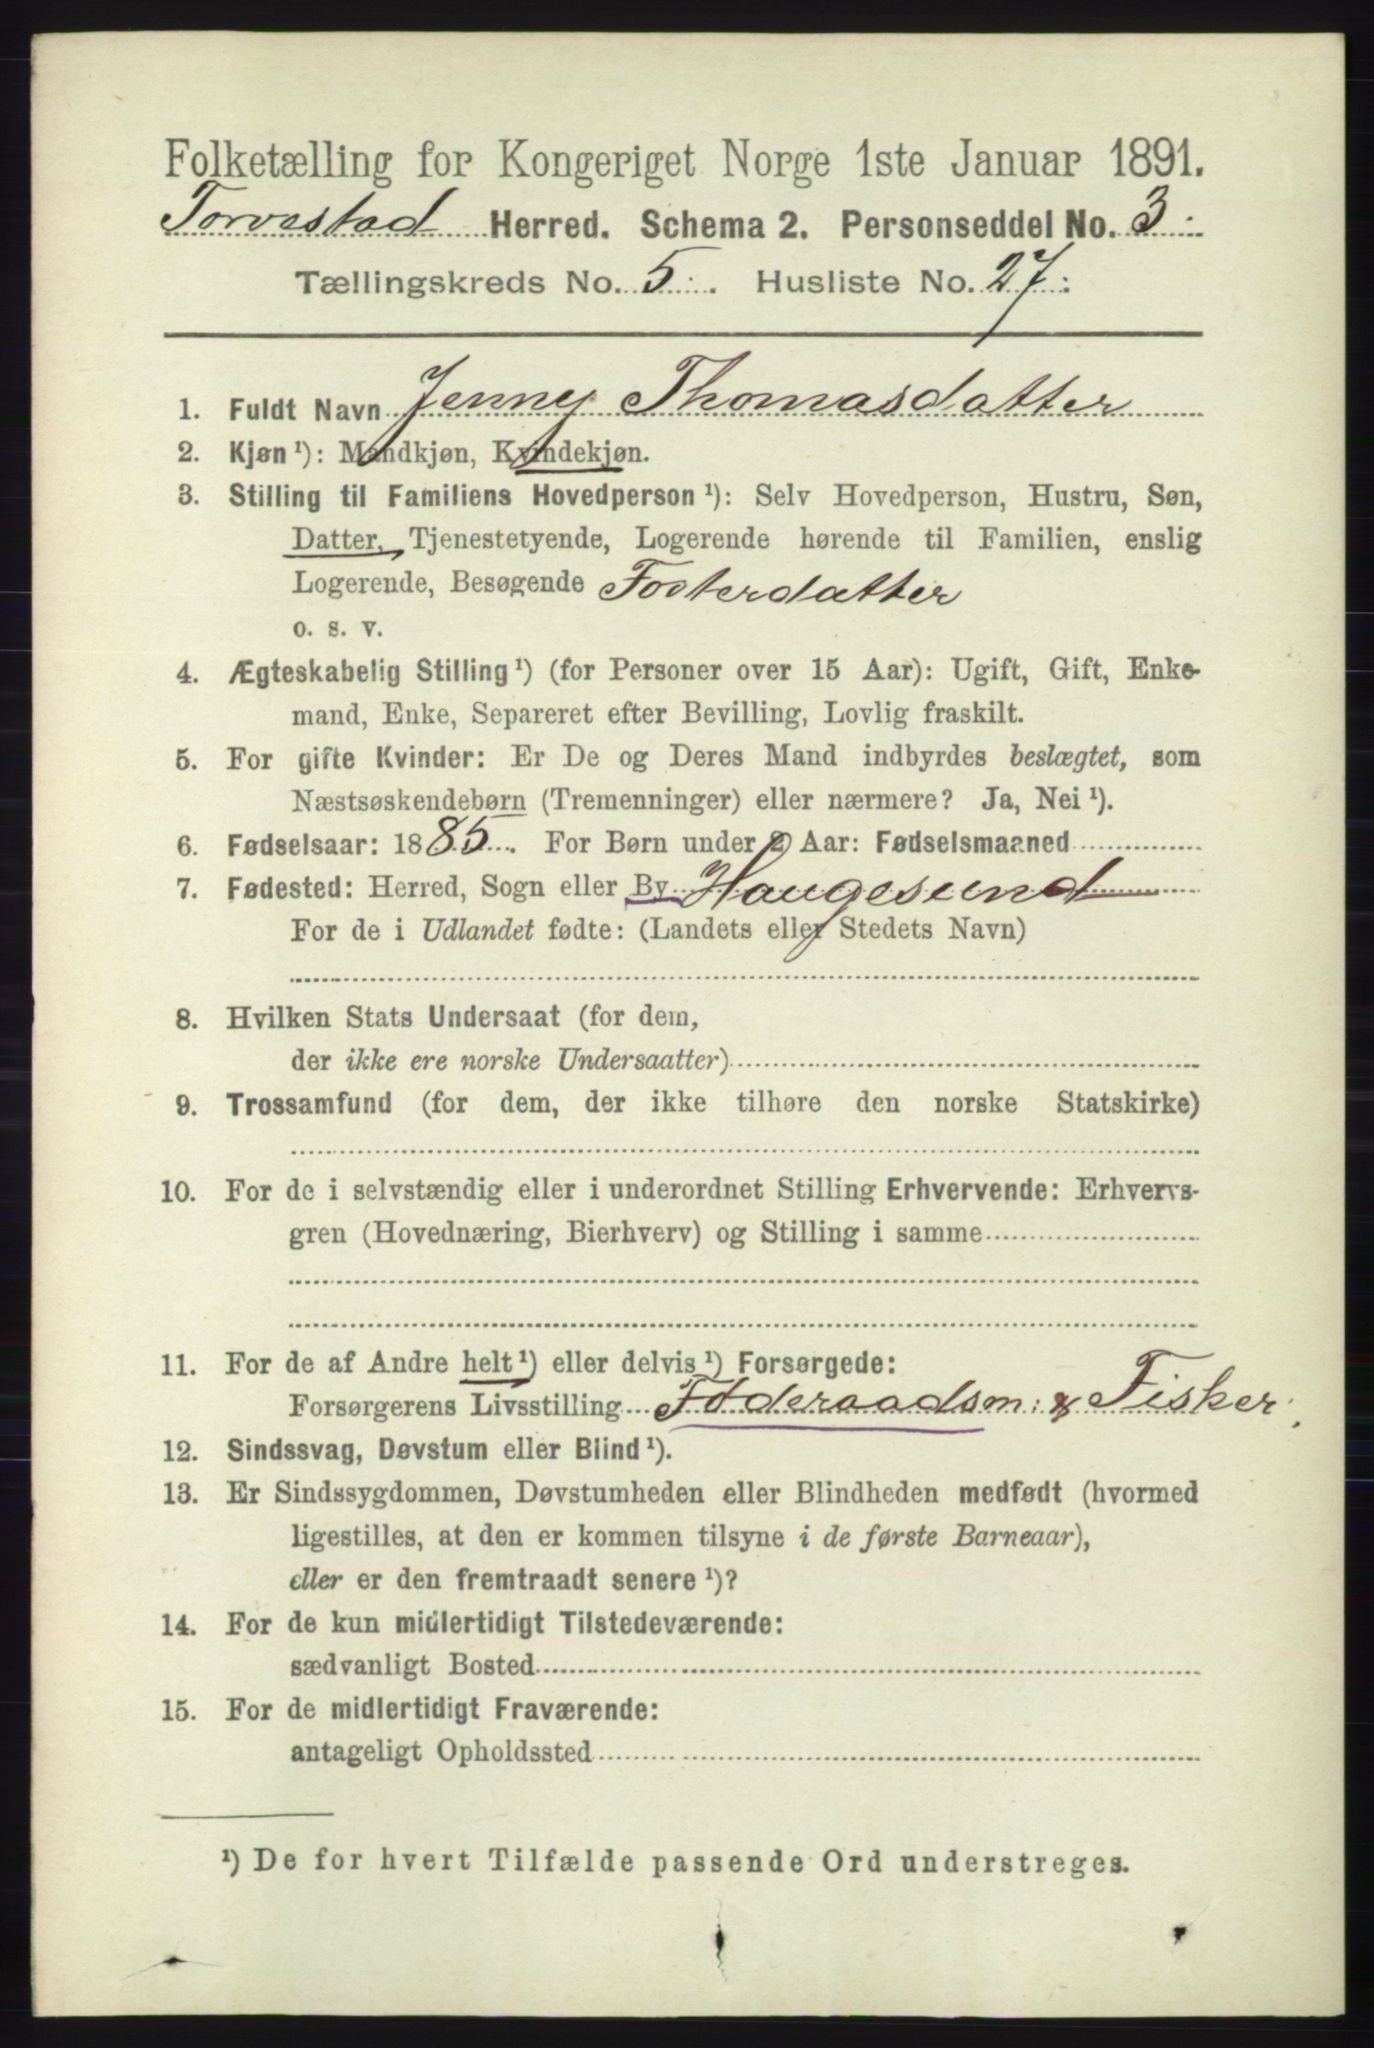 Folketælling for Kongeriget Norge 1ste Januar 1891.
Torvestad Herred. Schema 2. Personseddel No. 3.
Tællingskreds No. 5. Husliste No. 27.
1. Fuldt Navn Jenny Thomasdatter
2. Kjøn ¹): Mandkjøn, Kvindekjøn.
3. Stilling til Familiens Hovedperson ¹): Selv Hovedperson, Hustru, Søn,
Datter, Tjenestetyende, Logerende hørende til Familien, enslig
Logerende, Besøgende Fosterdatter
o. s. v.
4. Ægteskabelig Stilling ¹) (for Personer over 15 Aar): Ugift, Gift, Enke-
mand, Enke, Separeret efter Bevilling, Lovlig fraskilt.
5. For gifte Kvinder: Er De og Deres Mand indbyrdes beslægtet, som
Næstsøskendebørn (Tremenninger) eller nærmere? Ja, Nei ¹).
6. Fødselsaar: 1885. For Børn under 2 Aar: Fødselsmaaned
7. Fødested: Herred, Sogn eller By Haugesund
For de i Udlandet fødte: (Landets eller Stedets Navn)
8. Hvilken Stats Undersaat (for dem,
der ikke ere norske Undersaatter)
9. Trossamfund (for dem, der ikke tilhøre den norske Statskirke)
10. For de i selvstændig eller i underordnet Stilling Erhvervende: Erhvervs-
gren (Hovednæring, Bierhverv) og Stilling i samme
11. For de af Andre helt ¹) eller delvis ¹) Forsørgede:
Forsørgerens Livsstilling Føderaadsm: & Fisker.
12. Sindssvag, Døvstum eller Blind ¹).
13. Er Sindssygdommen, Døvstumheden eller Blindheden medfødt (hvormed
ligestilles, at den er kommen tilsyne i de første Barneaar),
eller er den fremtraadt senere ¹)?
14. For de kun midlertidigt Tilstedeværende:
sædvanligt Bosted
15. For de midlertidigt Fraværende:
antageligt Opholdssted
¹) De for hvert Tilfælde passende Ord understreges.